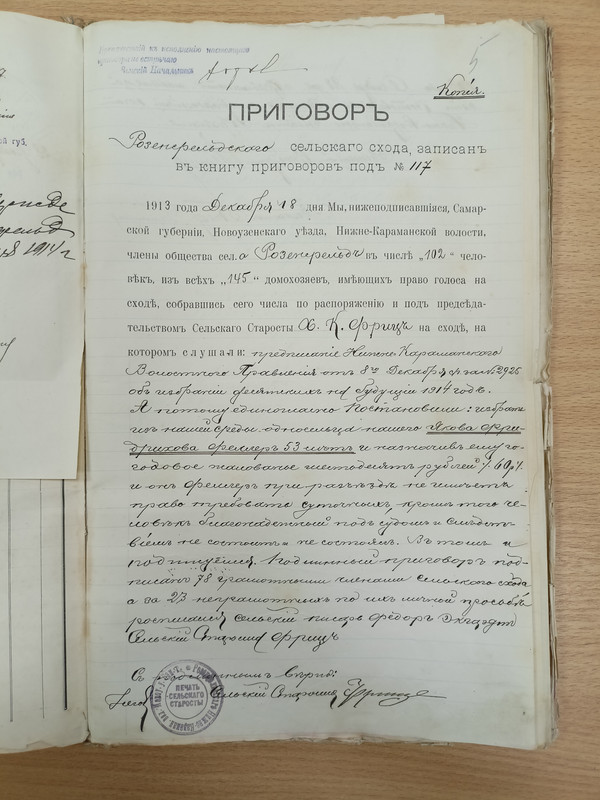 5
Копія.
ПРИГОВОРЪ
Розенфельдского сельскаго схода, записанъ
въ книгу приговоровъ подъ № 117
1913 года Декабря 18 дня Мы, нижеподписавшіяся, Самар-
ской губерніи, Новоузенскаго уѣзда, Нижне-Караманской волости,
члены общества сел.а Розенфельдъ въ числѣ „102" чело-
вѣкъ, изъ всѣхъ „145" домохозяевъ, имѣющихъ право голоса на
сходѣ, собравшись сего числа по распоряженію и подъ предсѣда-
тельствомъ Сельскаго Старосты Х. К. Фрицъ на сходѣ, на
которомъ слушали: предписаніе Нижне-Караманского
Волостного Правленія отъ 8го Декабря с/г за № 2926
объ избраніи десятскихъ на будущій 1914 годъ.
А потому единогласно Постановили: избрать
изъ нашей среды односельца нашего Якова Фри-
дрихова Феллеръ 53 лѣтъ и назначивъ ему го-
годовое жалованье шестьдесятъ рублей /.60 р./.
и онъ Феллеръ при разъѣздѣ не имѣетъ
право требовать суточныхъ, кромѣ того че-
ловѣкъ благонадежный подъ судомъ и слѣдст-
віемъ не состоитъ и не состоялъ. Въ томъ и
подпишемся. Подлинный приговоръ под-
писали 78 грамотными членами сельского схода
а за 23 неграмотныхъ по ихъ личной просьбѣ
росписался сельскій писарь Фёдоръ
Сельскій Староста Фрицъ
Съ подлиннымъ вѣрно:
Сельскій Староста Фрицъ
ПЕЧАТЬ
СЕЛЬСКАГО
СТАРОСТЫ
1914 г